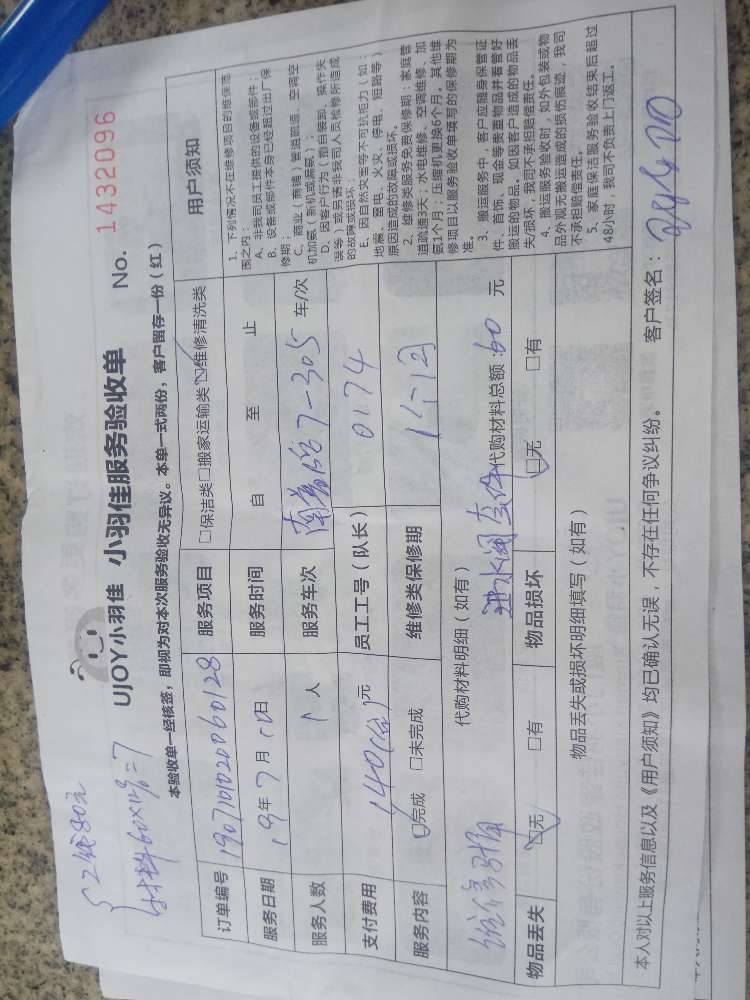 工钱80元
材料60×12%=7
UJOY小羽佳 小羽佳服务验收单 No. 1432096
本验收单一经核签，即视为对本次服务验收无异议。本单一式两份，客户留存一份（红）
订单编号 190710102060128 服务项目 □保洁类□搬家运输类☑维修清洗类
服务日期 19年7月10日 服务时间 自 至 止
服务人数 1人 服务车次 7-305 车/次
支付费用 140 元 员工工号（队长） 0174
服务内容 ☑完成 □未完成 维修类保修期 1个月
代购材料明细（如有） 进水阀 代购材料总额：60 元
物品丢失 ☑无 □有 物品损坏 ☑无 □有
物品丢失或损坏明细填写（如有）
本人对以上服务信息以及《用户须知》均已确认无误，不存在任何争议纠纷。 客户签名：
用户须知
1、下列情况不在维修项目的维保范
围之内：
A、非我司员工提供的设备或部件；
B、设备或部件本身已经超过出厂保
修期；
C、商业（商铺）管道疏通、空调空
机加氨（新机或漏氨）；
D、因客户行为（擅自装卸、操作失
误等）或另请非我司人员检修所造成
的故障或损坏；
E、因自然灾害等不可抗拒力（如：
地震、雷电、火灾、停电、短路等）
原因造成的故障或损坏。
2、维修类服务免费保修期：家庭管
道疏通3天；水电维修、空调维修、加
氨1个月；压缩机更换6个月。其他维
修项目以服务验收单填写的保修期为
准。
3、搬运服务中，客户应随身保管证
件、首饰、现金等贵重物品并看管好
搬运的物品。如因客户造成的物品丢
失/损坏，我司不承担赔偿责任。
4、搬运服务验收时，如外包装或物
品外观无搬运造成的损伤痕迹，我司
不承担赔偿责任。
5、家庭保洁服务验收结束后超过
48小时，我司不负责上门返工。